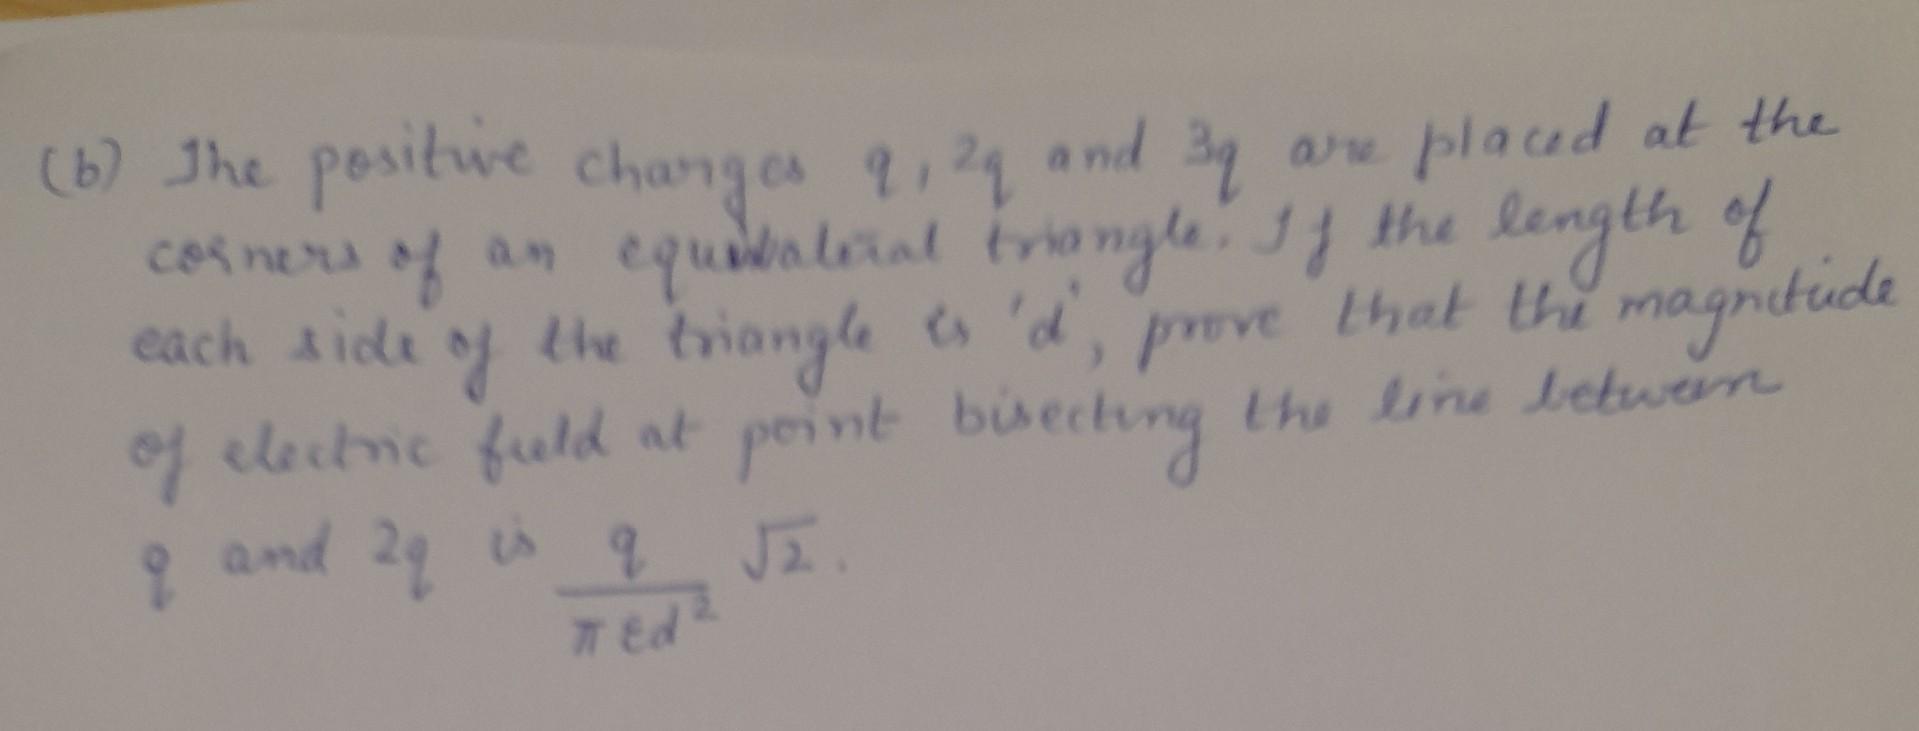 (b) The positive charges q, 2q and 3q are placed at the
corners of an equilateral triangle. If the length of
each side of the triangle is 'd', prove that the magnitude
of electric field at point bisecting the line between
q and 2q is q/πεd² √2.